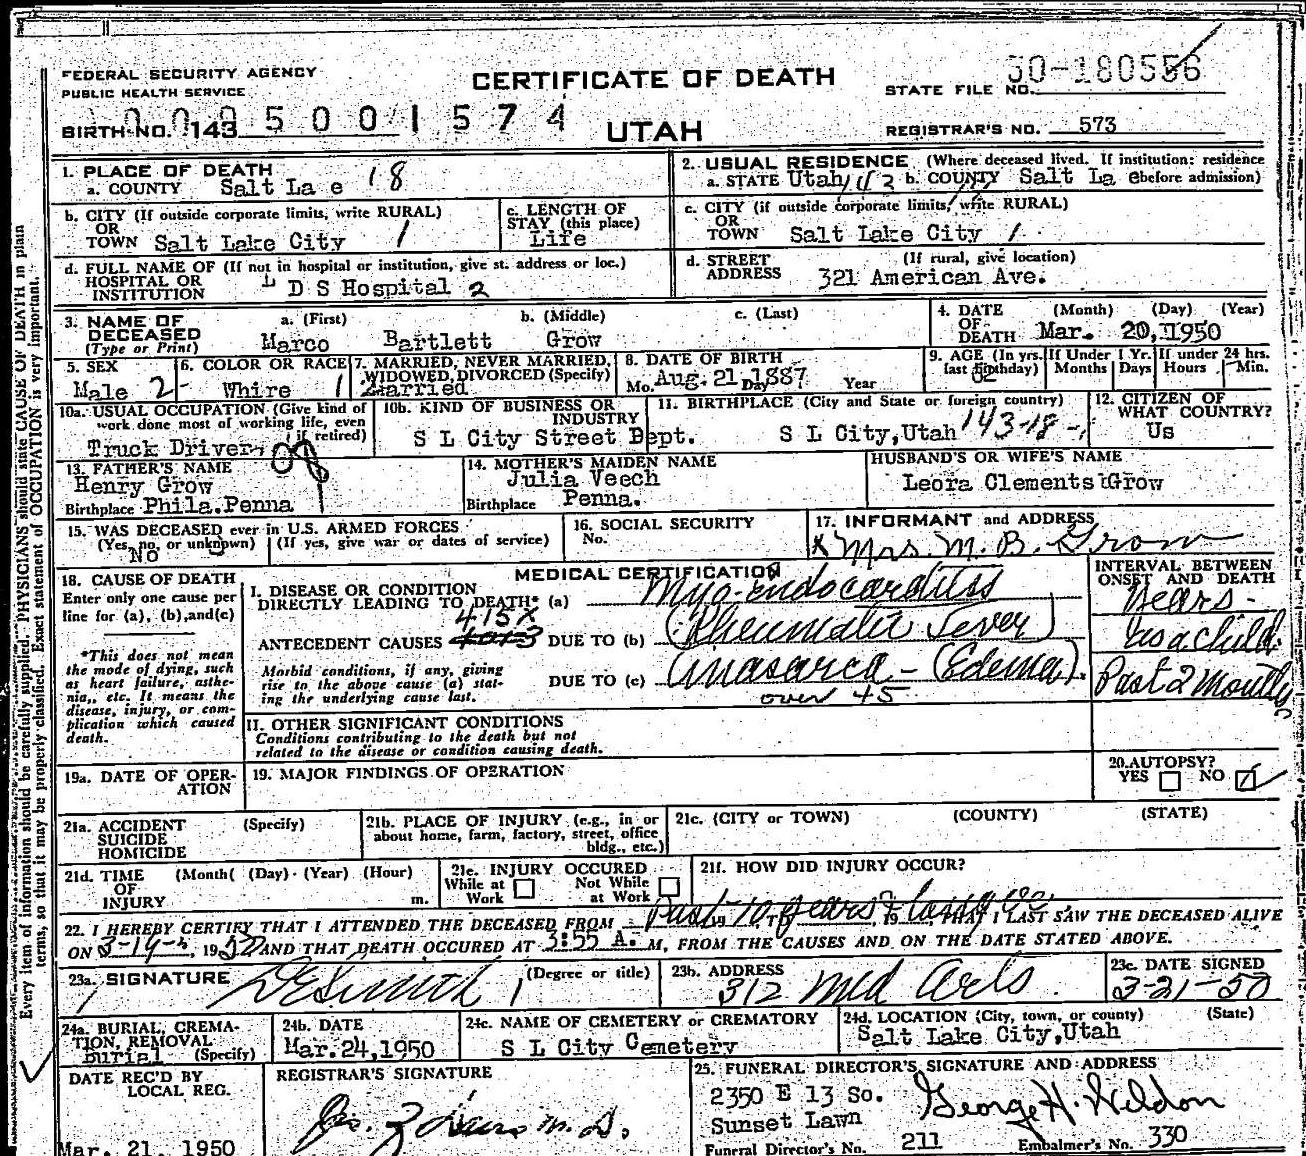 FEDERAL SECURITY AGENCY
PUBLIC HEALTH SERVICE
CERTIFICATE OF DEATH
STATE FILE NO. 50-180556
BIRTH NO. 143
009500 1574
UTAH
REGISTRAR'S NO. 573
1. PLACE OF DEATH
a. COUNTY Salt La e 18
2. USUAL RESIDENCE (Where deceased lived. If institution: residence
a. STATE Utah b. COUNTY Salt La e before admission)
b. CITY (If outside corporate limits, write RURAL)
OR
TOWN Salt Lake City 1
c. LENGTH OF
STAY (this place)
Life
c. CITY (if outside corporate limits, write RURAL)
OR
TOWN Salt Lake City 1
d. FULL NAME OF (If not in hospital or institution, give st. address or loc.)
HOSPITAL OR
INSTITUTION L D S Hospital 2
d. STREET (If rural, give location)
ADDRESS 321 American Ave.
3. NAME OF
DECEASED
(Type or Print)
a. (First) b. (Middle) c. (Last)
Marco Bartlett Grow
4. DATE (Month) (Day) (Year)
OF
DEATH Mar. 20, 1950
5. SEX
Male 2
6. COLOR OR RACE
Whire 1
7. MARRIED, NEVER MARRIED,
WIDOWED, DIVORCED (Specify)
Married
8. DATE OF BIRTH
Mo. Aug. 21 Day 1887 Year
9. AGE (In yrs. last birthday) 62
If Under 1 Yr. Months Days
If under 24 hrs. Hours Min.
10a. USUAL OCCUPATION (Give kind of
work done most of working life, even
if retired)
Truck Driver
10b. KIND OF BUSINESS OR
INDUSTRY
S L City Street Dept.
11. BIRTHPLACE (City and State or foreign country)
S L City, Utah 143-18-
12. CITIZEN OF
WHAT COUNTRY?
Us
13. FATHER'S NAME
Henry Grow
Birthplace Phila. Penna
14. MOTHER'S MAIDEN NAME
Julia Veech
Birthplace Penna.
HUSBAND'S OR WIFE'S NAME
Leora Clements Grow
15. WAS DECEASED ever in U.S. ARMED FORCES
(Yes, no, or unknown) (If yes, give war or dates of service)
No
16. SOCIAL SECURITY
No.
17. INFORMANT and ADDRESS
x Mrs. M. B. Grow
18. CAUSE OF DEATH
Enter only one cause per
line for (a), (b), and (c)
*This does not mean
the mode of dying, such
as heart failure, asthe-
nia,, etc. It means the
disease, injury, or com-
plication which caused
death.
MEDICAL CERTIFICATION
I. DISEASE OR CONDITION
DIRECTLY LEADING TO DEATH* (a) Myo-endocarditis
415X
ANTECEDENT CAUSES DUE TO (b) (Rheumatic Fever)
Morbid conditions, if any, giving
rise to the above cause (a) stat-
ing the underlying cause last.
DUE TO (c) Anasarca - (Edema).
over 45
INTERVAL BETWEEN
ONSET AND DEATH
Years -
As a child.
Past 2 Months
II. OTHER SIGNIFICANT CONDITIONS
Conditions contributing to the death but not
related to the disease or condition causing death.
19a. DATE OF OPER-
ATION
19. MAJOR FINDINGS OF OPERATION
20. AUTOPSY?
YES NO
21a. ACCIDENT (Specify)
SUICIDE
HOMICIDE
21b. PLACE OF INJURY (e.g., in or
about home, farm, factory, street, office
bldg., etc.)
21c. (CITY or TOWN) (COUNTY) (STATE)
21d. TIME (Month( (Day) (Year) (Hour)
OF
INJURY m.
21e. INJURY OCCURED
While at Work Not While at Work
21f. HOW DID INJURY OCCUR?
22. I HEREBY CERTIFY THAT I ATTENDED THE DECEASED FROM Past 10 years & longer, THAT I LAST SAW THE DECEASED ALIVE
ON 3-19-, 1950 AND THAT DEATH OCCURED AT 3:55 A. M, FROM THE CAUSES AND ON THE DATE STATED ABOVE.
23a. SIGNATURE (Degree or title)
23b. ADDRESS
312 Med Arts
23c. DATE SIGNED
3-21-50
24a. BURIAL, CREMA-
TION, REMOVAL
Burial (Specify)
24b. DATE
Mar. 24, 1950
24c. NAME OF CEMETERY or CREMATORY
S L City Cemetery
24d. LOCATION (City, town, or county) (State)
Salt Lake City, Utah
DATE REC'D BY
LOCAL REG.
Mar. 21, 1950
REGISTRAR'S SIGNATURE
M.D.
25. FUNERAL DIRECTOR'S SIGNATURE AND ADDRESS
2350 E 13 So.
Sunset Lawn
George H. Weldon
Funeral Director's No. 211 Embalmer's No. 330
Every item of information should be carefully supplied. PHYSICIANS should state CAUSE OF DEATH in plain
terms, so that it may be properly classified. Exact statement of OCCUPATION is very important.